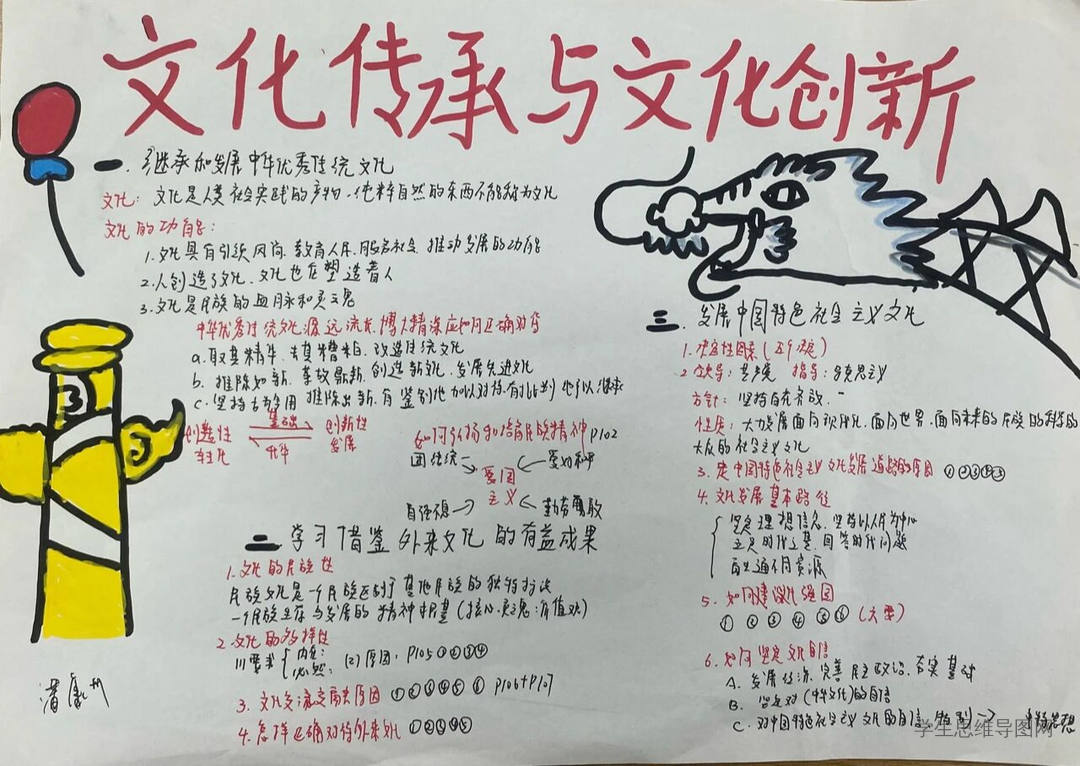 文化传承与文化创新
一. 继承和发展中华优秀传统文化
文化: 文化是人类社会实践的产物. 纯粹自然的东西不能称为文化
文化的功能:
1. 文化具有引领风尚、教育人民、服务社会、推动发展的功能
2. 人创造了文化, 文化也在塑造着人
3. 文化是民族的血脉和灵魂
中华优秀传统文化源远流长、博大精深应如何正确对待
a. 取其精华、去其糟粕, 改造传统文化
b. 推陈出新、革故鼎新, 创造新文化, 发展先进文化
c. 坚持古为今用 推陈出新, 有鉴别地加以对待, 有扬弃地予以继承
创造性
转化
基础
创新性
发展
如何弘扬和培育民族精神 P102
团结统一
爱好和平
爱国
主义
自强不息
勤劳勇敢
二. 学习借鉴外来文化的有益成果
1. 文化的民族性
民族文化是一个民族区别于其他民族的独特标识
一个民族生存与发展的精神根基 (核心、灵魂: 价值观)
2. 文化的多样性
(1) 要求 { 内在:
必然: (2) 原因: P105 ①②③④
3. 文化交流交融原因 ①②③④⑤⑥ P106+P107
4. 怎样正确对待外来文化 ①②③④⑤
三. 发展中国特色社会主义文化
1. 决定性因素 (五个决定)
2. 领导: 共产党 指导: 马克思主义
方针: 坚持百花齐放, 一
性质: 大力发展面向现代化、面向世界、面向未来的民族的科学的
大众的社会主义文化
3. 走中国特色社会主义文化发展道路的原因 ①②③④⑤
4. 文化发展基本路径
坚定理想信念, 坚持以人民为中心
立足时代之基, 回答时代问题
5. 如何建设文化强国
① ② ③ ④ ⑤ ⑥ (大题)
6. 如何坚定文化自信
A. 发展经济, 完善民主政治, 夯实基础
B. 坚定对 (中华文化) 的自信
C. 对中国特色社会主义文化的自信, 特别→
学生思维导图网